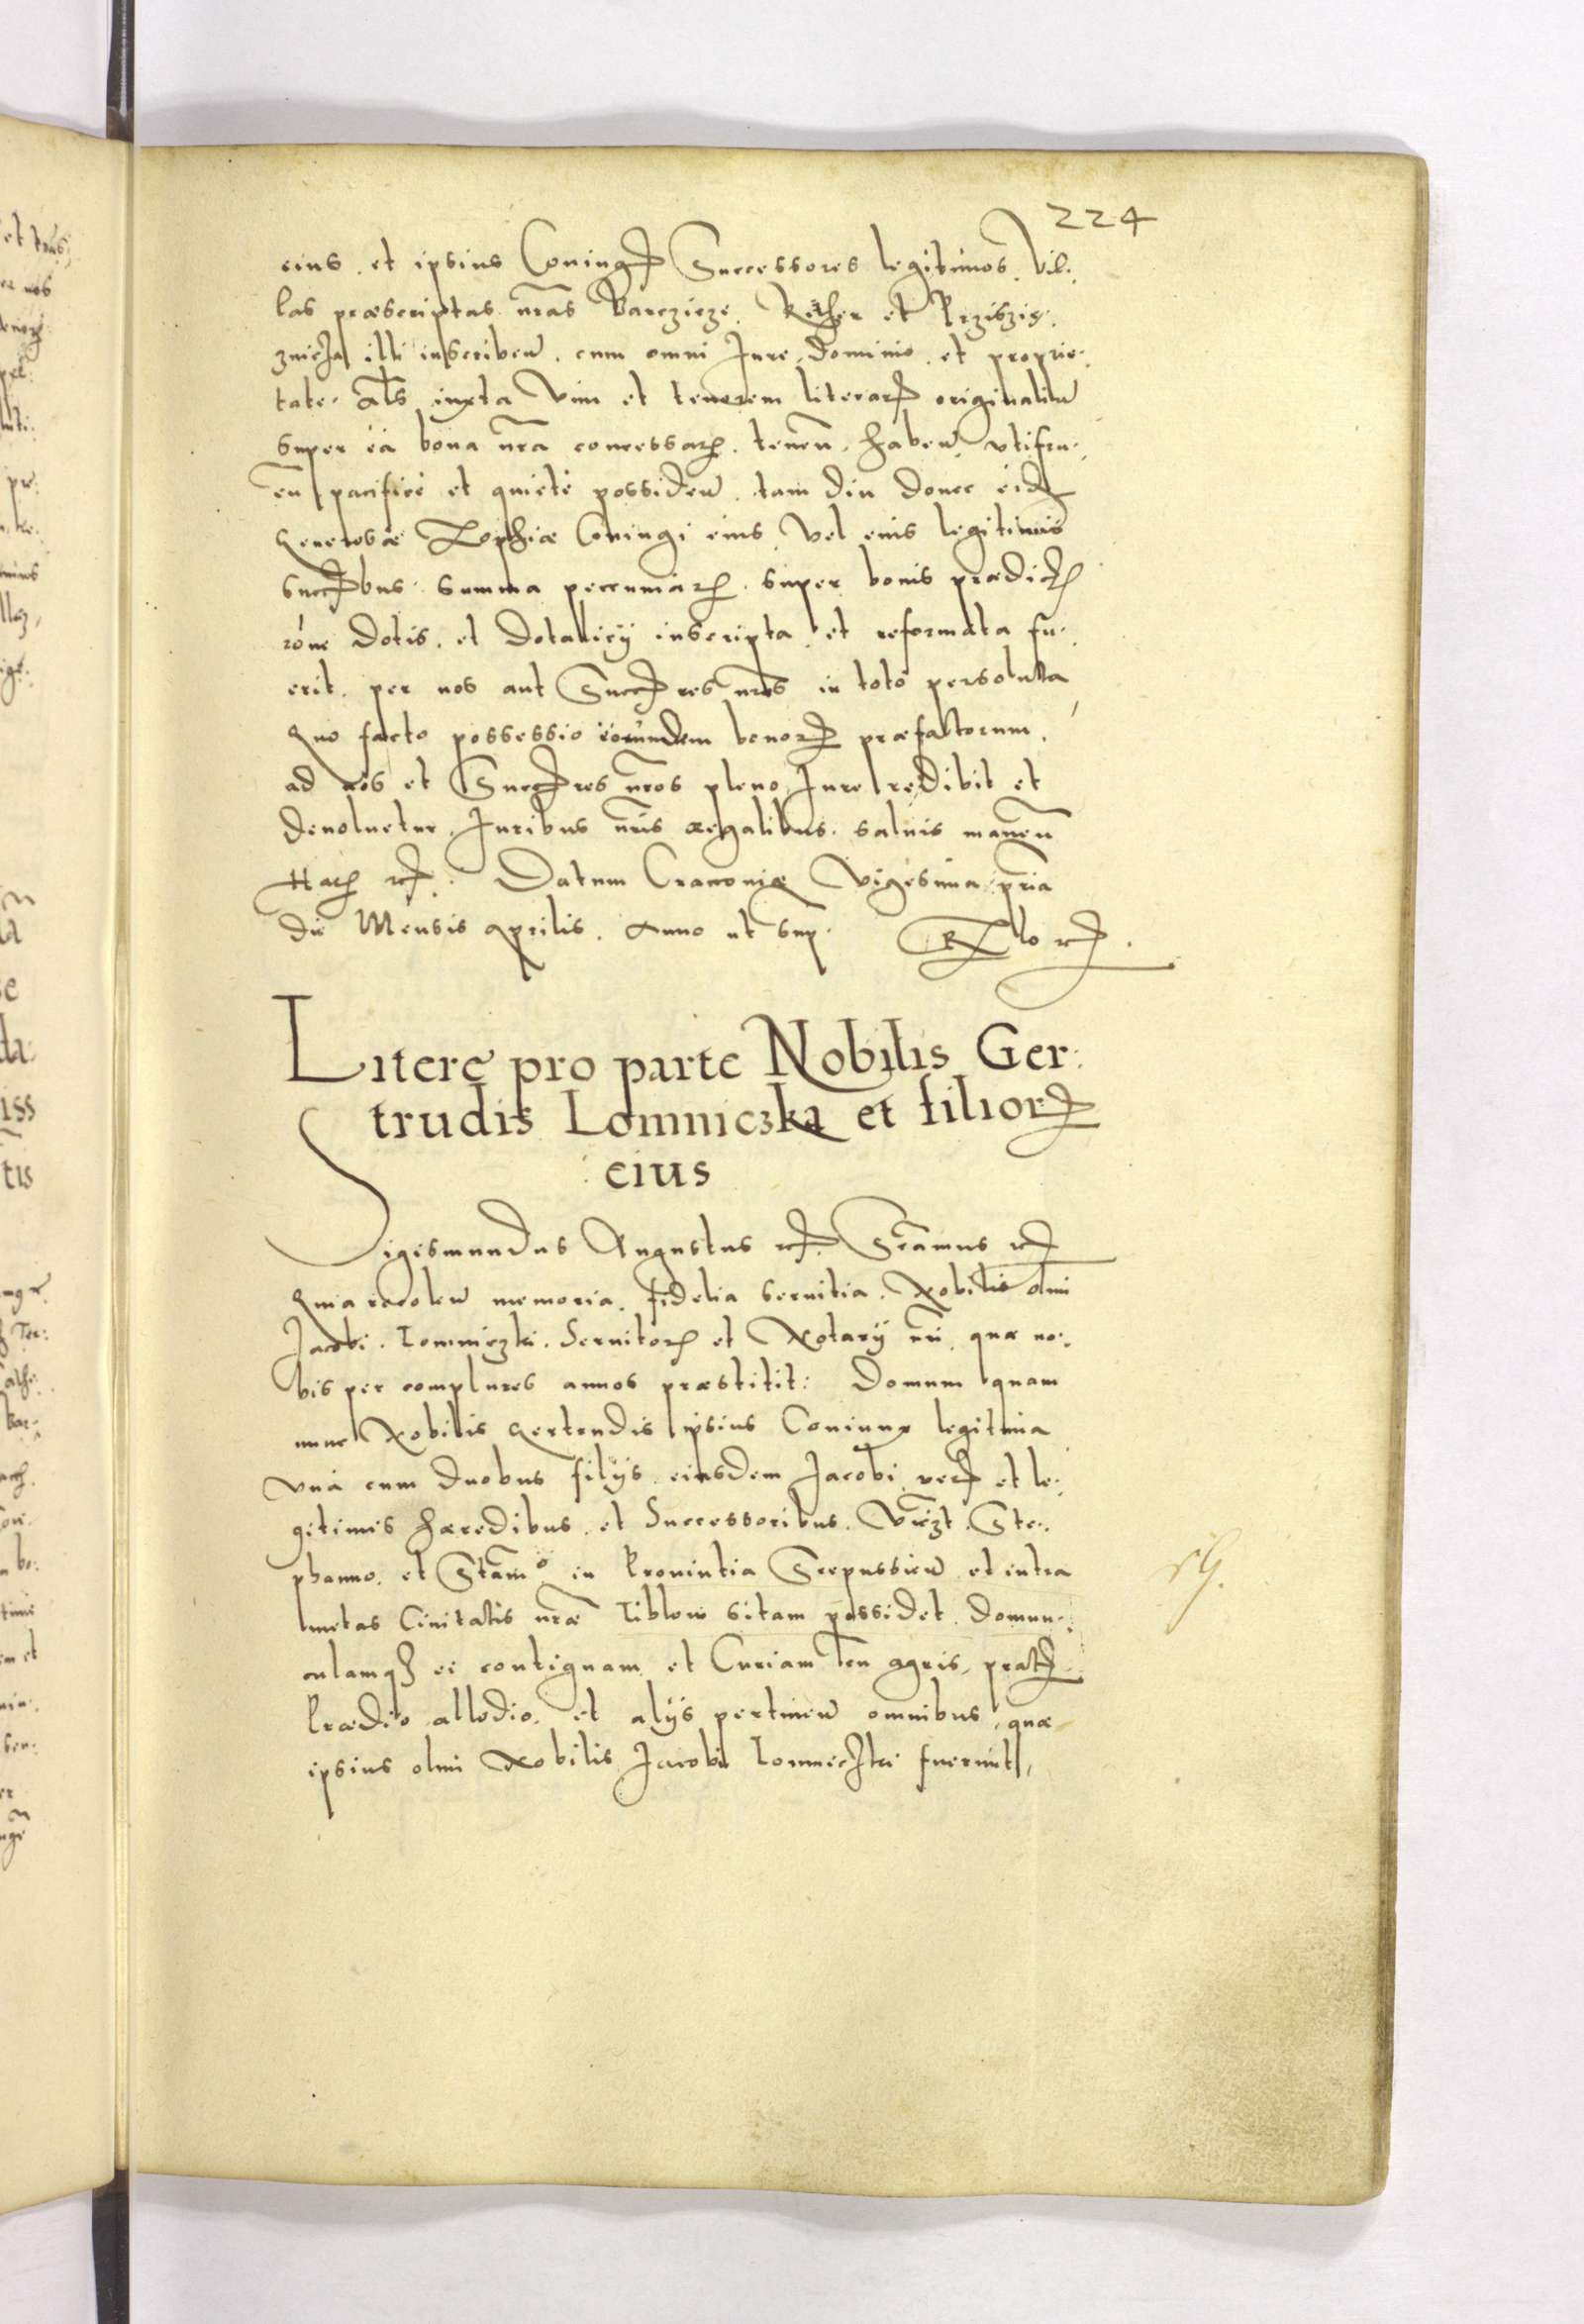 224
eius et ipsius Coniugꝝ Successores legitimos Vil:
las præscriptas nr̄as Barczicze et
illi inscriben̄ cum omni Jure Dominio et proprie:
tate al̄s iuxta Vim et tenorem literarꝝ originaliū
super ea bona nr̄a concessarꝝ tenen̄ haben̄ vtifru:
en̄ pacifice et quiete possiden̄ tam diu donec eidꝫ
generosæ Zophiæ Coniugi eius Vel eius legitimis
succꝝbus summa peccuniarꝝ super bonis prædictꝝ
rōne Dotis et Dotalicij inscripta et reformata fu:
erit per nos aut Succꝝres nr̄os in toto persoluta
Quo facto possessio eorundem bonorꝝ præfactorum
ad nos et Succꝝres nr̄os pleno Jure redibit et
deuoluetur Juribus nr̄is regalibus saluis manen̄
Harꝝ rꝝ. Datum Cracouiæ Vigesima pria
die Mensis Aprilis. Anno ut sup.
Litere pro parte Nobilis Ger:
trudis Lomniczka et filiorꝝ
eius
Sigismundus Augustus rꝝ. Sr̄amus rꝝ
Quia recolen̄ memoria fidelia seruitia Nobilis olim
Jacobi Lomniczki Seruitorꝝ et Notarij nr̄i quæ no:
bis per complures annos præstitit: Domum quam
nunc Nobilis gertrudis ipsius Coniunx legitima
vna cum duobus filijs eiusdem Jacobi verꝝ et le:
gitimis hæredibus et Successoribus Vr̄zt Ste:
phanno et Stanō in Prouintia Scepussien̄ et intra
metas Ciuitatis nr̄æ Liblow sitam possidet Domun:
culamqꝫ ei contiguam et Curiam cū agris, pratꝝ
Prædio allodio et alijs pertinen̄ omnibus quæ
ipsius olim Nobilis Jacobi Lomniczki fuerunt,